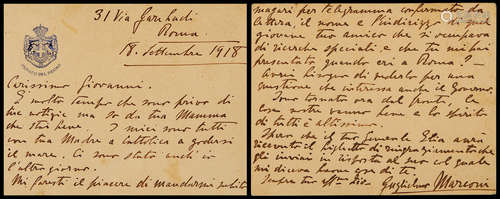 31 Via Garibaldi
Roma
18. Settembre 1918
SENATO DEL REGNO
Carissimo Giovanni.
È molto tempo che sono privo di
tue notizie ma so da tua Mamma
che stai bene. I miei sono tutti
con tua Madre a Cattolica a godersi
il mare. Ci sono stato anch'io
l'altro giorno.
Mi faresti il piacere di mandarmi subito
magari per telegramma confermato da
lettera, il nome e l'indirizzo di quel
giovane tuo amico che si occupava
di ricerche speciali e che tu mi hai
presentato quando eri a Roma? —
Avrei bisogno di vederlo per una
questione che interessa anche il Governo.
Sono tornato ora dal fronte. Le
cose nostre vanno bene e lo spirito
di tutti è altissimo.
Spero che il tuo Generale Elia avrà
ricevuto il biglietto di ringraziamento che
gli inviai in risposta al suo col quale
mi diceva buone cose di te.
Sempre tuo aff. zio
Guglielmo Marconi